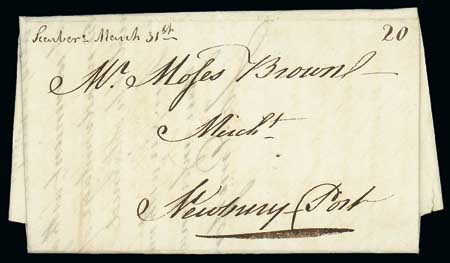 Scarbor° March 31st 20
Mr. Moses Brown
Mercht
Newbury Port